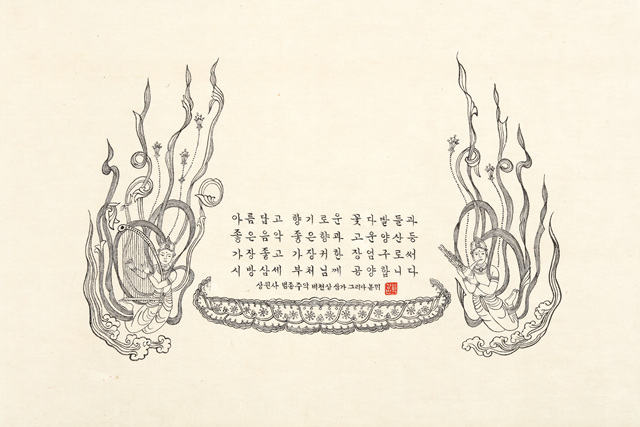 아름답고 향기로운 꽃다발들과
좋은음악 좋은향과 고운양산등
가장좋고 가장귀한 장엄구로써
시방삼세 부처님께 공양합니다
상원사 범종주악 비천상 삼가 그리다 불민